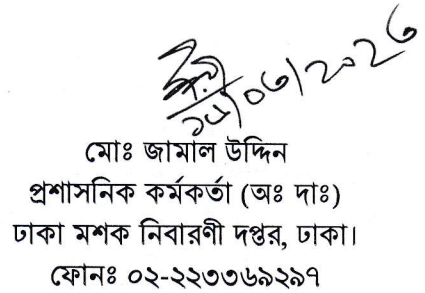 মোঃ জামাল উদ্দিন
প্রশাসনিক কর্মকর্তা (অঃ দাঃ)
ঢাকা মশক নিবারণী দপ্তর, ঢাকা।
ফোনঃ ০২-২২৩৩৬৯২৯৭